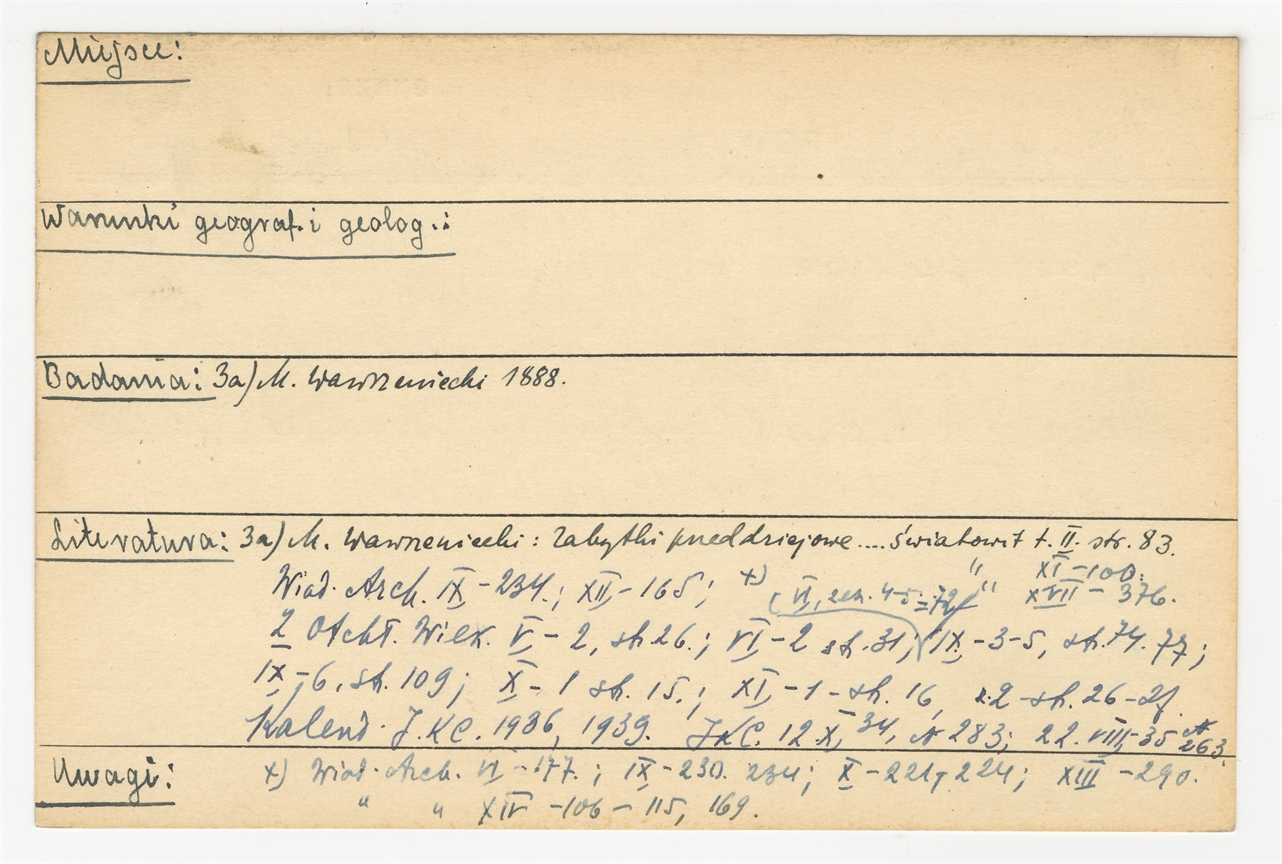 Miejsce:
Warunki geograf. i geolog.:
Badania: 3a) M. Wawrzeniecki 1888.
Literatura: 3a) M. Wawrzeniecki: Zabytki przeddziejowe .... Światowit t. II. str. 83.
" XI - 100.
Wiad. Arch. IX - 234.; XII - 165; x) " XVII - 376.
( VI, zesz. 4-5 = 72)
Z Otchł. Wiek. V - 2, str. 26.; VI - 2 str. 31; IX - 3-5, str. 74. 77;
IX - 6, str. 109; X - 1 str. 15.; XI - 1 - str. 16, z. 2 - str. 26-27.
Kalend. J.K.C. 1936, 1939. JKC. 12.X.34, № 283; 22.VIII.35 № 263.
Uwagi: x) Wiad. Arch. VI - 177.; IX - 230. 234; X - 221, 224; XIII - 290.
" " XIV - 106 - 115, 169.